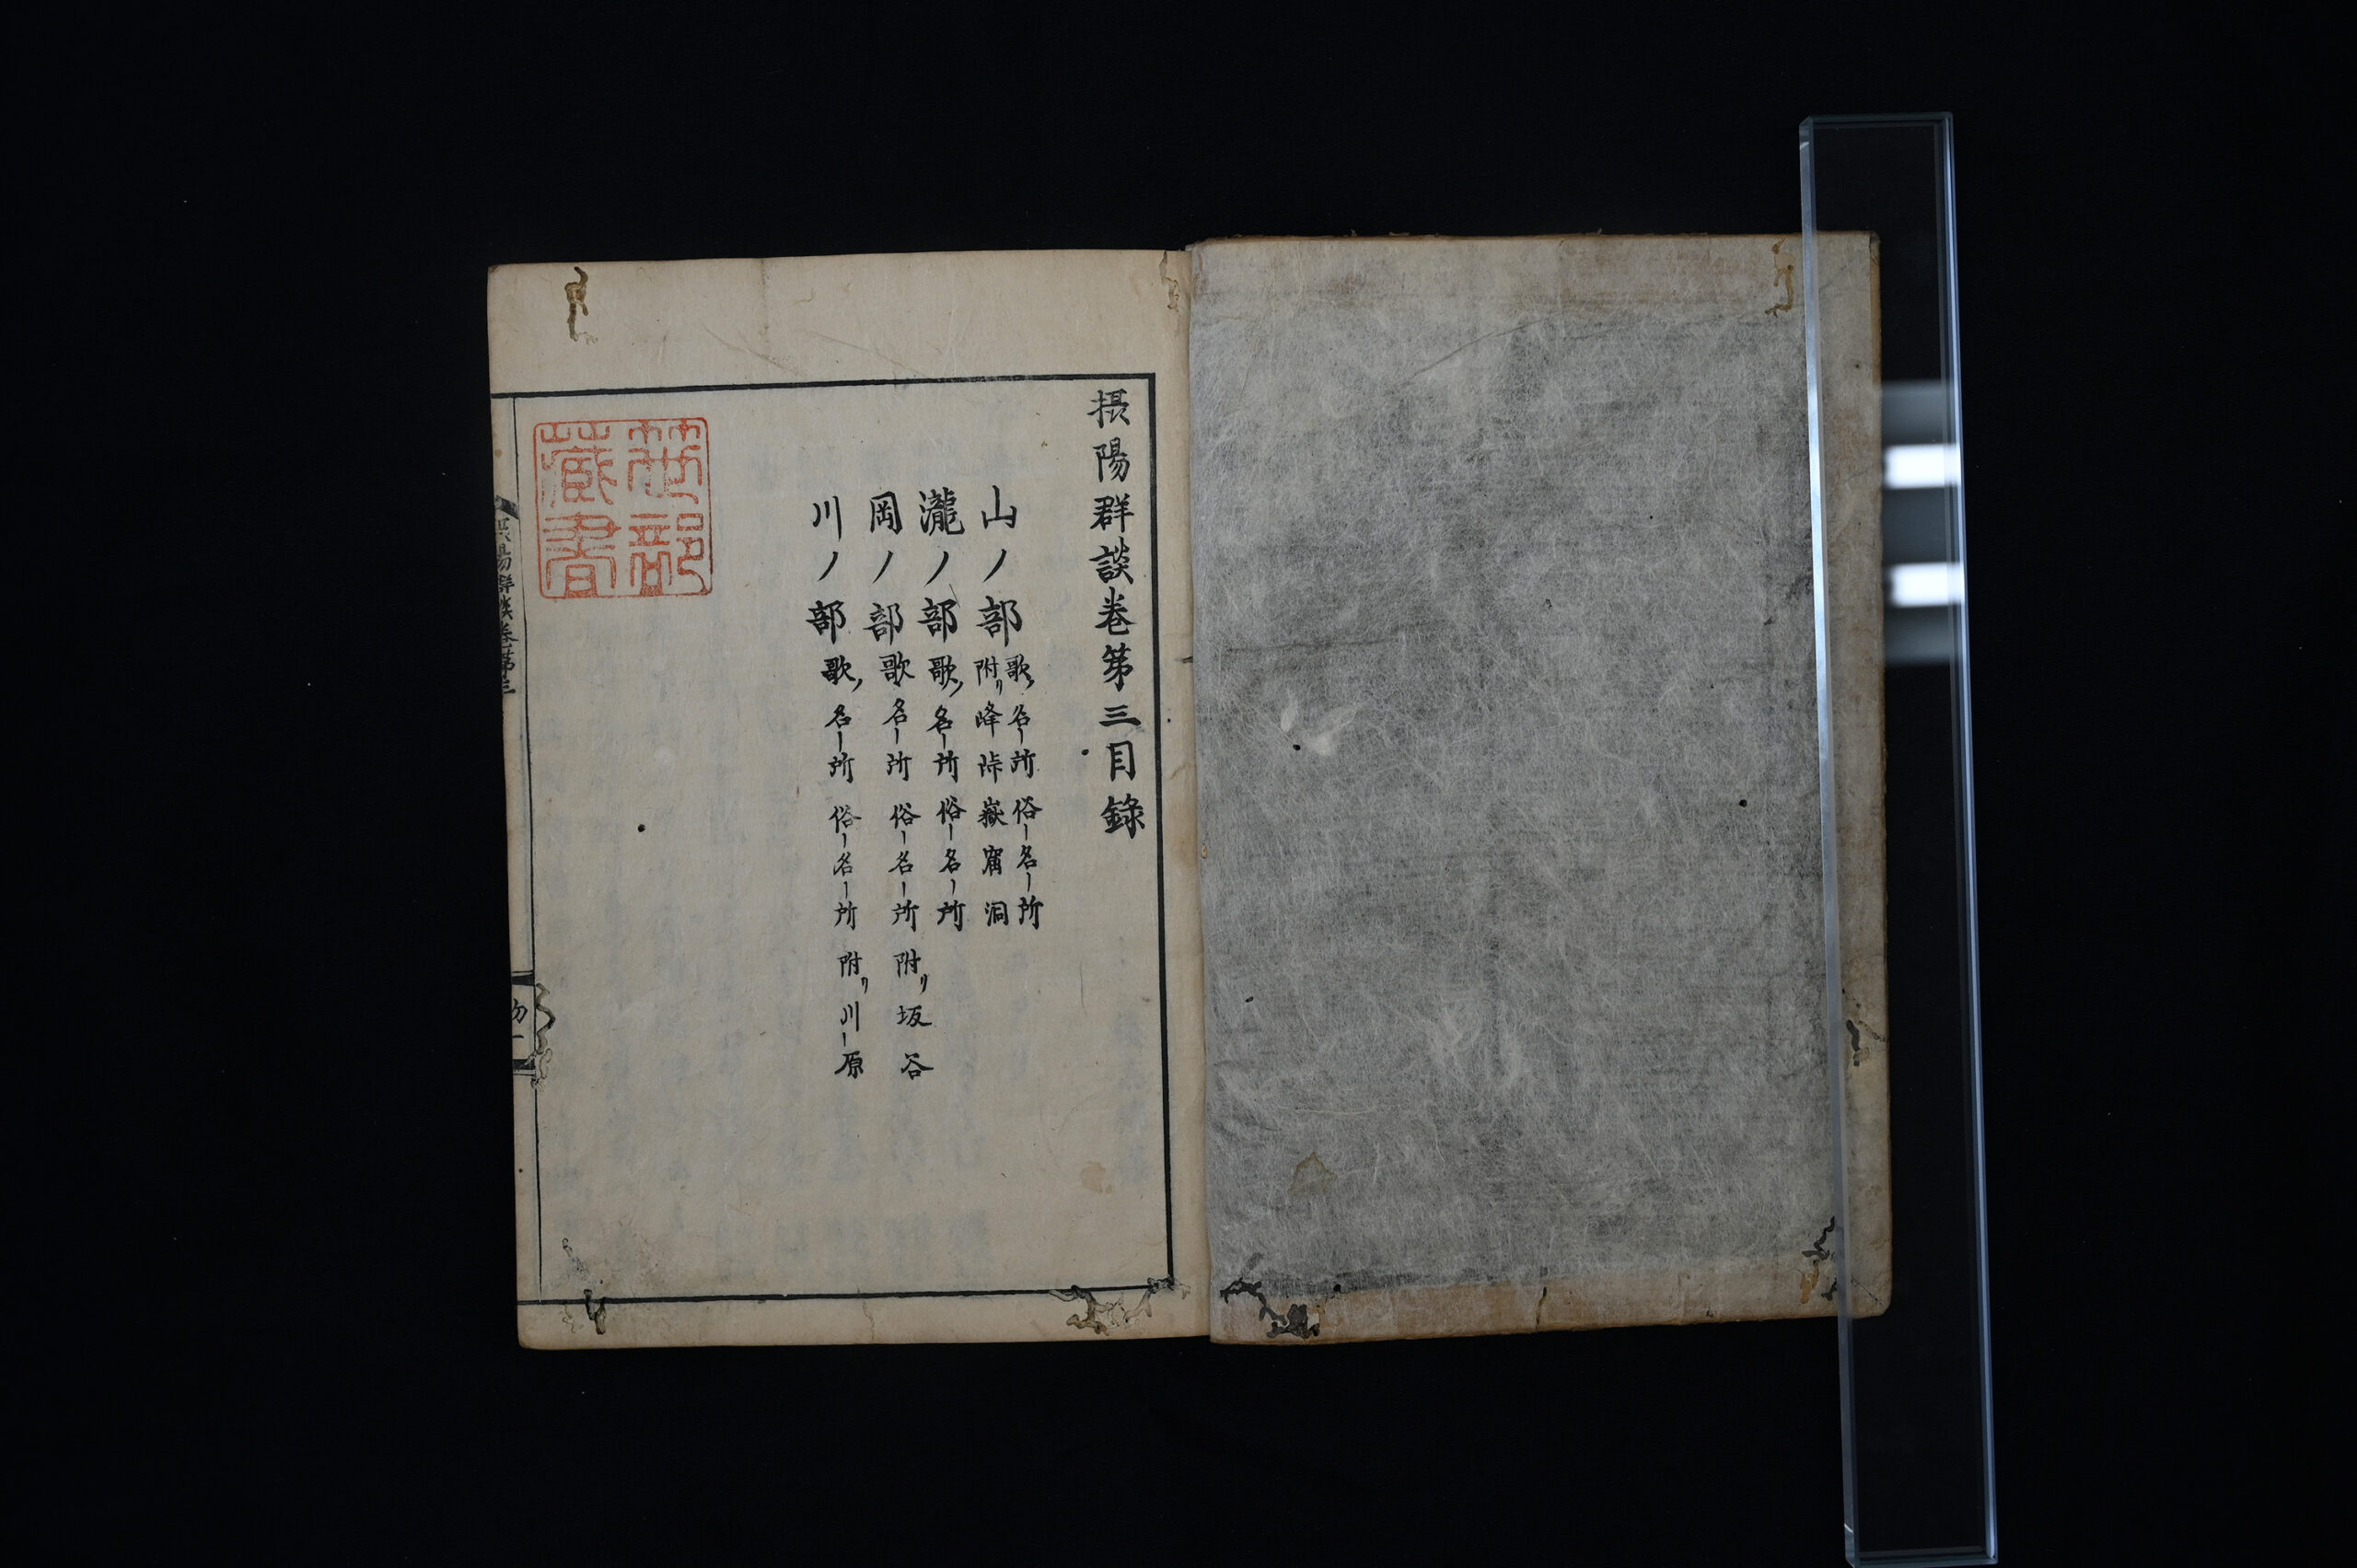 摂陽群談巻第三目録
山ノ部 歌ノ名所 俗名所
附リ 峰 峠 嶽 窟 洞
瀧ノ部 歌ノ名所 俗名所
岡ノ部 歌名所 俗名所 附リ 坂 谷
川ノ部 歌ノ名所 俗名所 附リ 川原
藏書
摂陽群談巻第三